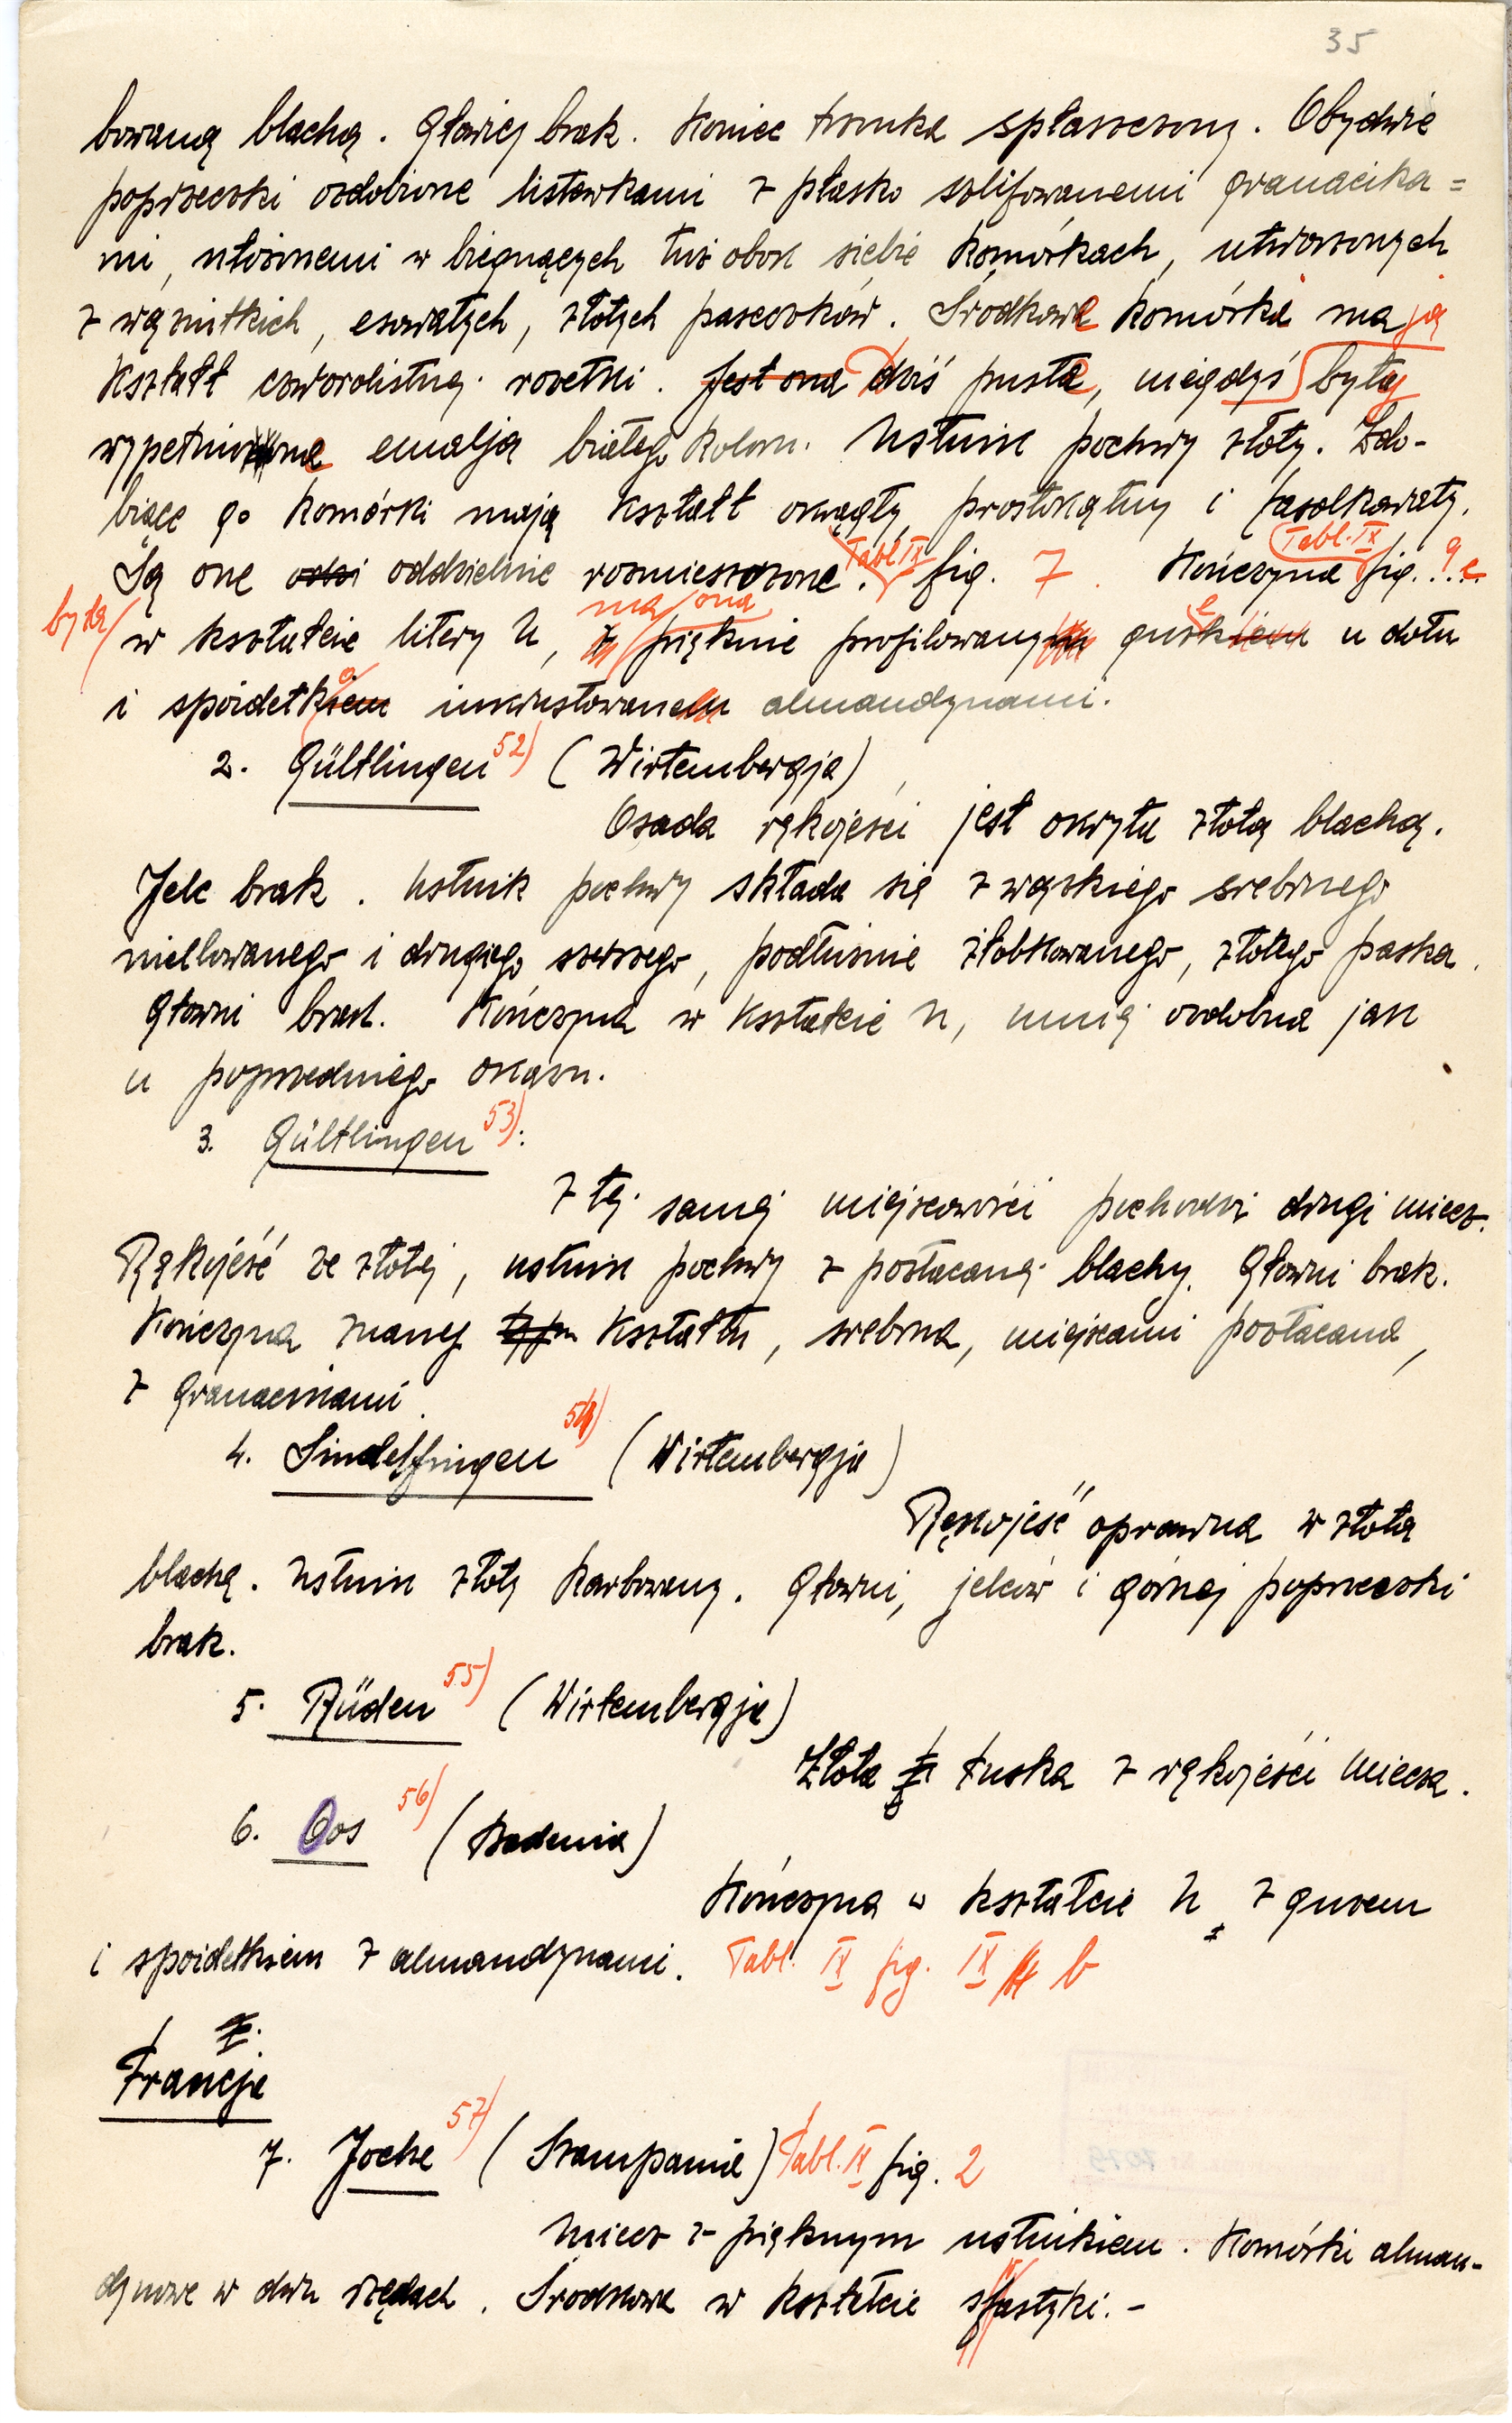 35
bowaną blachą. Głowicy brak. Koniec trzonka spłaszczony. Obydwie
poprzeczki ozdobione listewkami z płasko szlifowanemi granacika=
mi, ułożonemi w biegnących tuż obok siebie komórkach, utworzonych
z wązkich, esowatych, złotych paseczków. Środkowe komórki mają
kształt czworolistnej rozetki. Jest ona dziś puste, niegdyś były
wypełnione emalją białego koloru. Ustnik pochwy złoty. Zdo-
biące go komórki mają kształt okrągły, prostokątny i fasolkowaty.
Są one oddzielnie rozmieszczone. Tabl. IX fig. 7. Kończyna Tabl. IX fig. 9 c.
była w kształcie litery U, ma ona pięknie profilowany guzek u dołu
i spoidełko inkrustowane almandynami.
2. Gültlingen 52) (Wirtembergja)
Osada rękojeści jest okryta złotą blachą.
Jelc brak. Ustnik pochwy składa się z wązkiego srebrnego
niellowanego i drugiego szerszego, podłużnie żłobkowanego, złotego paska.
Głowni brak. Kończyna w kształcie U, mniej ozdobna jak
u poprzedniego okazu.
3. Gültlingen 53):
Z tej samej miejscowości pochodzi drugi miecz.
Rękojeść ze złotej, ustnik pochwy z pozłacanej blachy. Głowni brak.
Kończyna znanej kształtu, srebrna, miejscami pozłacana,
z granacikami.
4. Sindelfingen 54) (Wirtembergja)
Rękojeść oprawna w złotą
blachą. Ustnik złoty karbowany. Głowni, jelców i górnej poprzeczki
brak.
5. Rüden 55) (Wirtembergja)
Złota łuska z rękojeści miecza.
6. Oos 56) (Badenia)
Kończyna w kształcie U z guzem
i spoidełkiem z almandynami. Tabl. IX fig. IX b
Francja
7. Joche 57) (Szampania) Tabl. IX fig. 2
Miecz z pięknym ustnikiem. Komórki alman-
dynowe w dwu rzędach. Środkowa w kształcie sfastyki.-